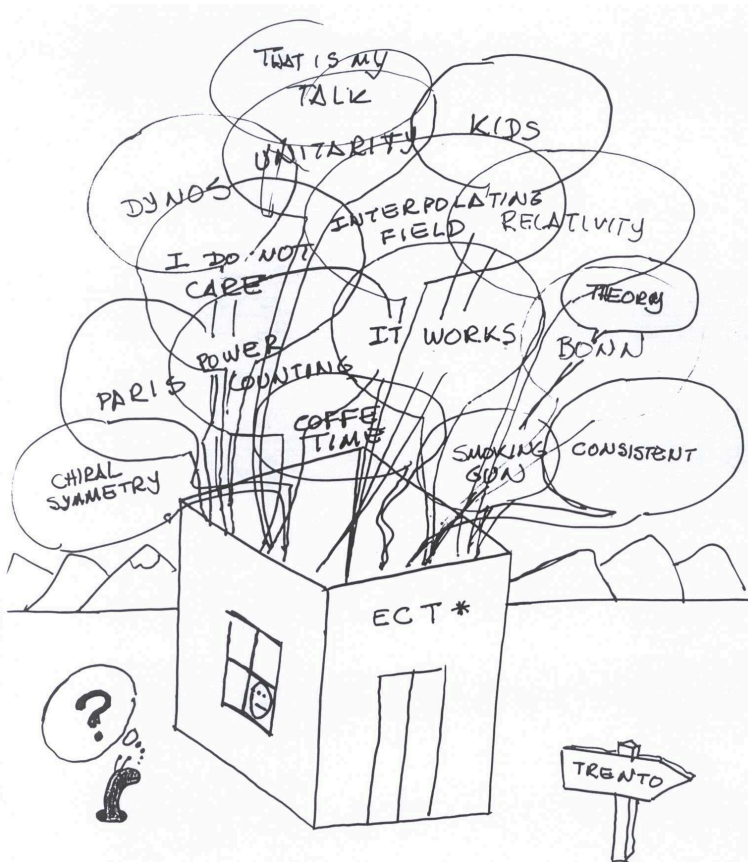 THAT IS MY
TALK
KIDS
UNITARITY
DYNOS
INTERPOLATING
FIELD
RELATIVITY
I DO NOT
CARE
THEORY
IT WORKS
BONN
POWER
COUNTING
PARIS
COFFE
TIME
SMOKING
GUN
CONSISTENT
CHIRAL
SYMMETRY
ECT*
?
TRENTO